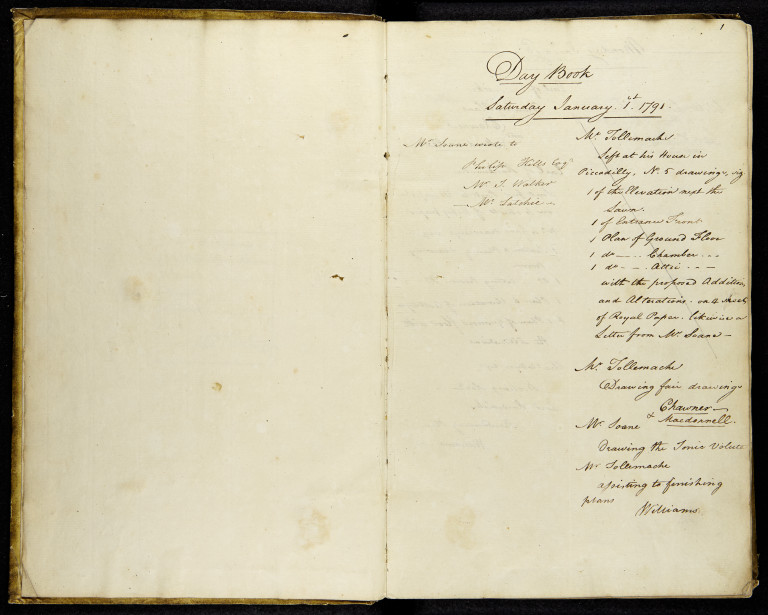 1
Day Book
Saturday January 1st. 1791.
Mr. Soane wrote to
Philip Hills Esqr
Mr. J. Walker
— Mr. Salchee —
Mr. Tollemache
Left at his House in
Piccadilly, No. 5 drawings, vig
1 of the Elevation next the
Lawn.
1 of Entrance Front
1 Plan of Ground Floor
1 do — . . Chamber . . .
1 do . — . Attic . . —
with the proposed Additions
and Alterations. on 4 sheets
of Royal Paper. likewise a
Letter from Mr. Soane —
Mr. Tollemache
Drawing fair drawings
Chawner —
& Macdonnell.
Mr. Soane
Drawing the Ionic Volute
Mr Tollemache
assisting to finishing
plans
Williams